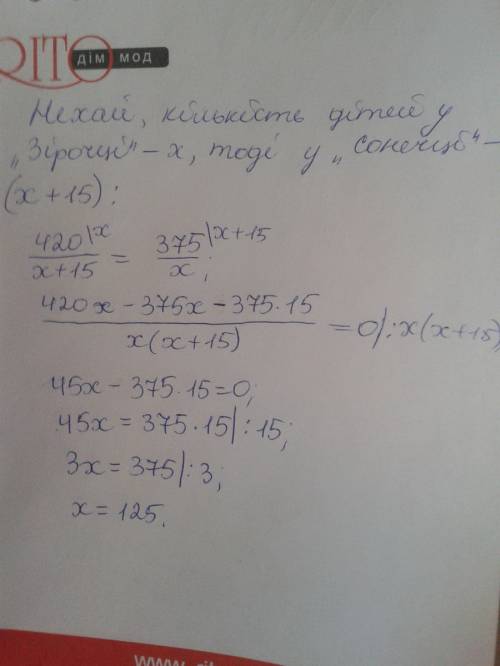 РІТО
дім мод
Нехай, кількість дітей у
„Зірочці" – x, тоді у „Сонечці" –
(x + 15) :
420\x / x+15 = 375\x+15 / x ;
420x – 375x – 375·15 / x(x+15) = 0 |: x(x+15)
45x – 375·15 = 0;
45x = 375·15 |: 15;
3x = 375 |: 3;
x = 125.